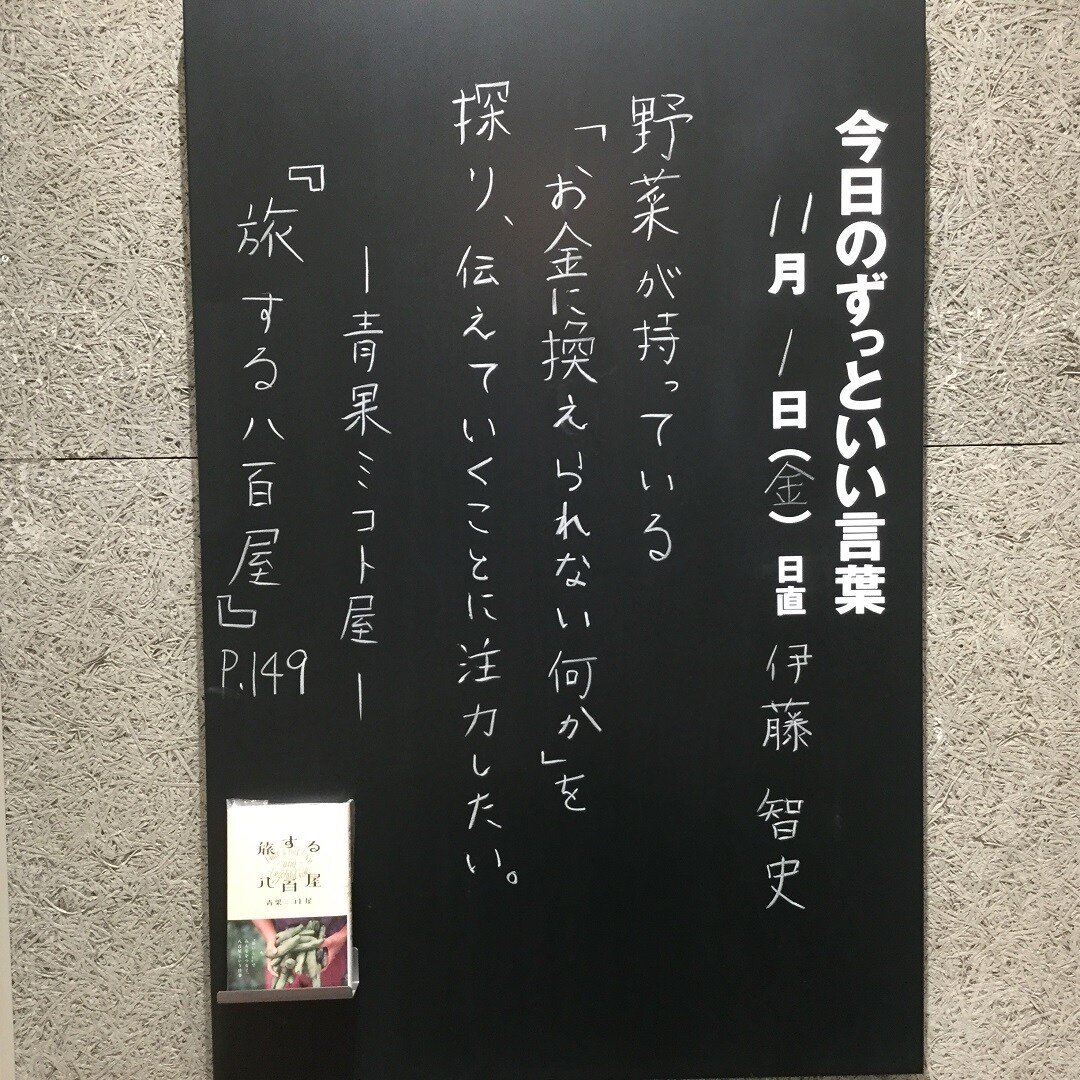 今日のずっといい言葉
11月1日(金) 日直 伊藤 智史
野菜が持っている
「お金に換えられない何か」を
探り、伝えていくことに注力したい。
ー青果ミコト屋ー
『旅する八百屋』P.149
旅する
八百屋
青果ミコト屋